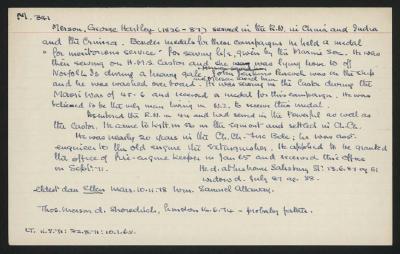 M. 351
Merson, George Hartley (1826 - 87) served in the R.N. in China and India
and the Crimea. Besides medals for these campaigns he held a medal
"for meritorious service" for saving life, given by the Marine Soc. He was
then serving on H.M.S. Castor and she was lying hove to off
Norfolk Is during a heavy gale. John Jenkins Peacock was on the ship
and he was washed overboard. He was serving in the Castor during the
Maori War of 45-6 and received a medal for this campaign. He was
believed to be the only man living in N.Z. to receive this medal.
He entered the R.N. in 44 and had served in the Powerful as well as
the Castor. He came to in the and settled in Ch.Ch.
He was nearly 20 years in the Ch.Ch. Fire Bde; he was asst.
engineer to the old engine the Extinguisher. He applied to be granted
the office of fire-engine keeper in Jan 65 and received this office
on Sept. 71. He d. at his home Salisbury St. 13.6.87 ag 61
widow d. July 27 ag. 58.
eldest dau Ellen marr. 10.11.78 Wm. Samuel Attaway.
Thos. Merson d. Shoreditch, London 16.6.74 - probably father.
LT. 4.7.71; 22.8.71; 10.1.65.